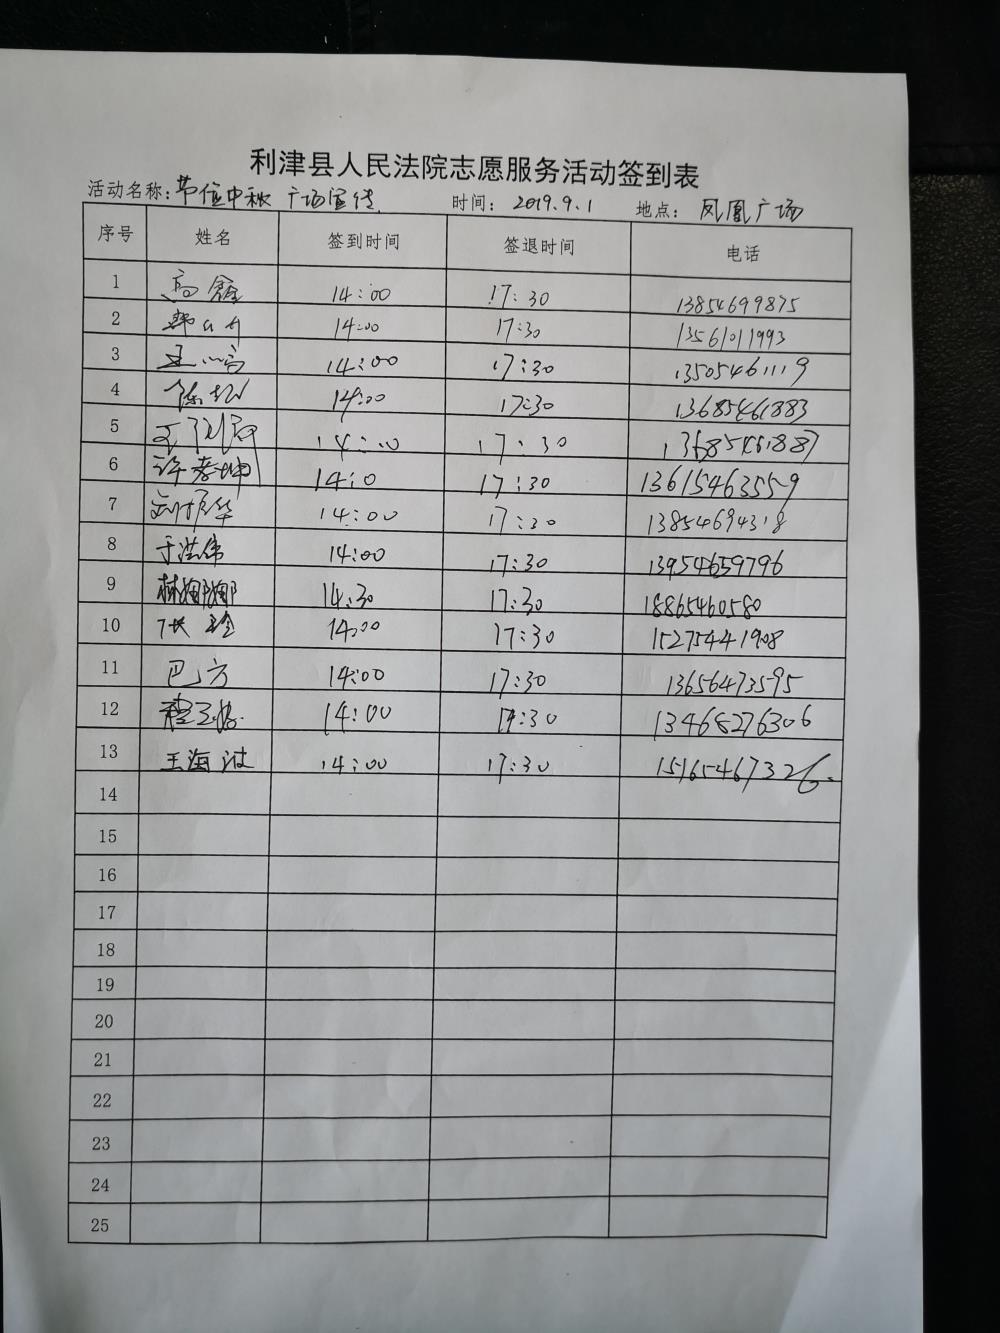 利津县人民法院志愿服务活动签到表
活动名称: 中秋 广场宣传 时间: 2019.9.1 地点: 凤凰广场
序号 姓名 签到时间 签退时间 电话
1 高鑫 14:00 17:30 13854699875
2 14:00 17:30 13561011993
3 14:00 17:30 13505461119
4 陈 14:00 17:30 13685461883
5 14:00 17:30 13685461887
6 许孝坤 14:0 17:30 13615463559
7 刘振华 14:00 17:30 13854694318
8 于洪伟 14:00 17:30 13954659796
9 林娜娜 14:30 17:30 18865460580
10 张 14:00 17:30 15275441908
11 巴方 14:00 17:30 13656473595
12 程玉 14:00 17:30 13468276306
13 王海波 14:00 17:30 15165467326.
14
15
16
17
18
19
20
21
22
23
24
25